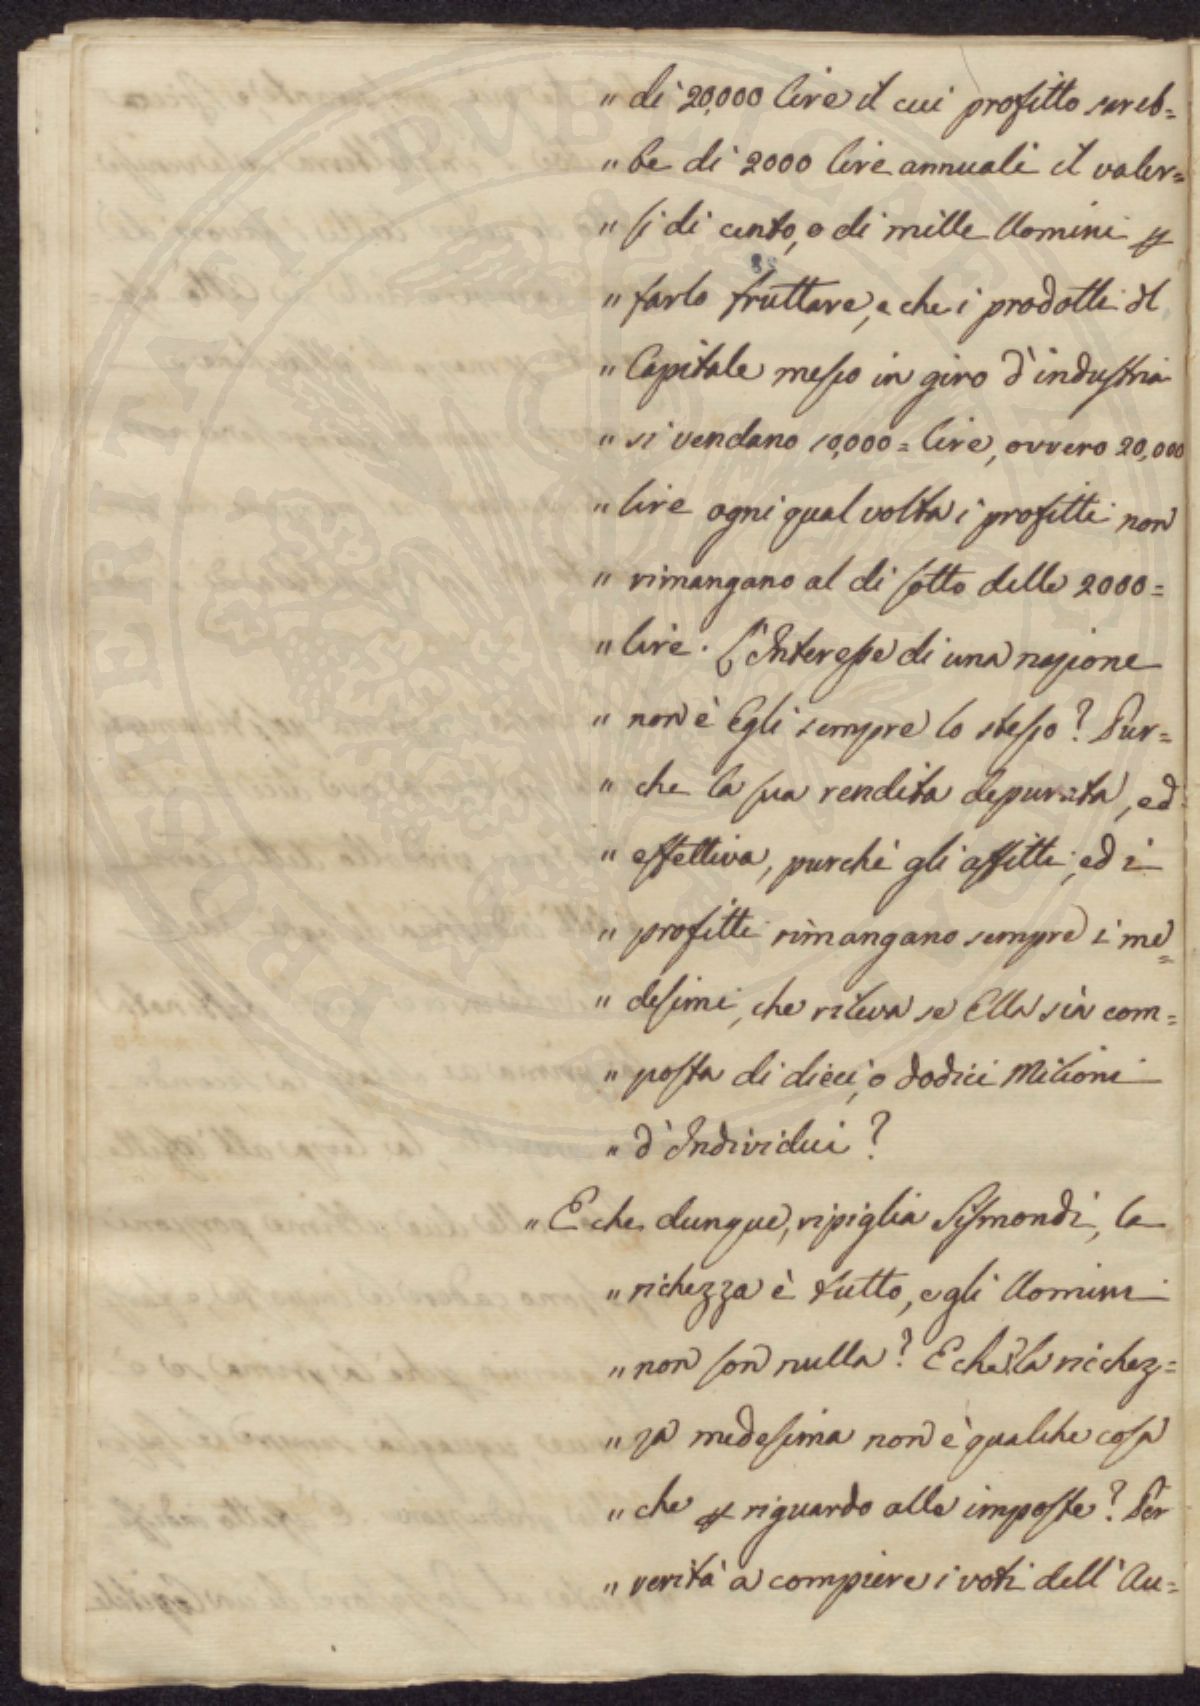 " di 20,000 lire il cui profitto sareb=
" be di 2000 lire annuali il valer=
" si di cento, o di mille Uomini p
" farlo fruttare, e che i prodotti dl
" Capitale messo in giro d'industria
" si vendano 10,000 = lire, ovvero 20,000
" lire ogni qual volta i profitti non
" rimangano al di sotto delle 2000 =
" lire. L'Interesse di una nazione
" non è Egli sempre lo stesso? Pur=
" che la sua rendita depurata, ed
" effettiva, purchè gli affitti, ed i
" profitti rimangano sempre i me=
" desimi, che rileva se Ella sia com=
" posta di dieci, o dodici Milioni
" d'Individui?
" E che dunque, ripiglia Sismondi, la
" richezza è tutto, e gli Uomini
" non son nulla? E che? la richez=
" za medesima non è qualche cosa
" che p riguardo alle imposte? Per
" verità a compiere i voti dell'Au=